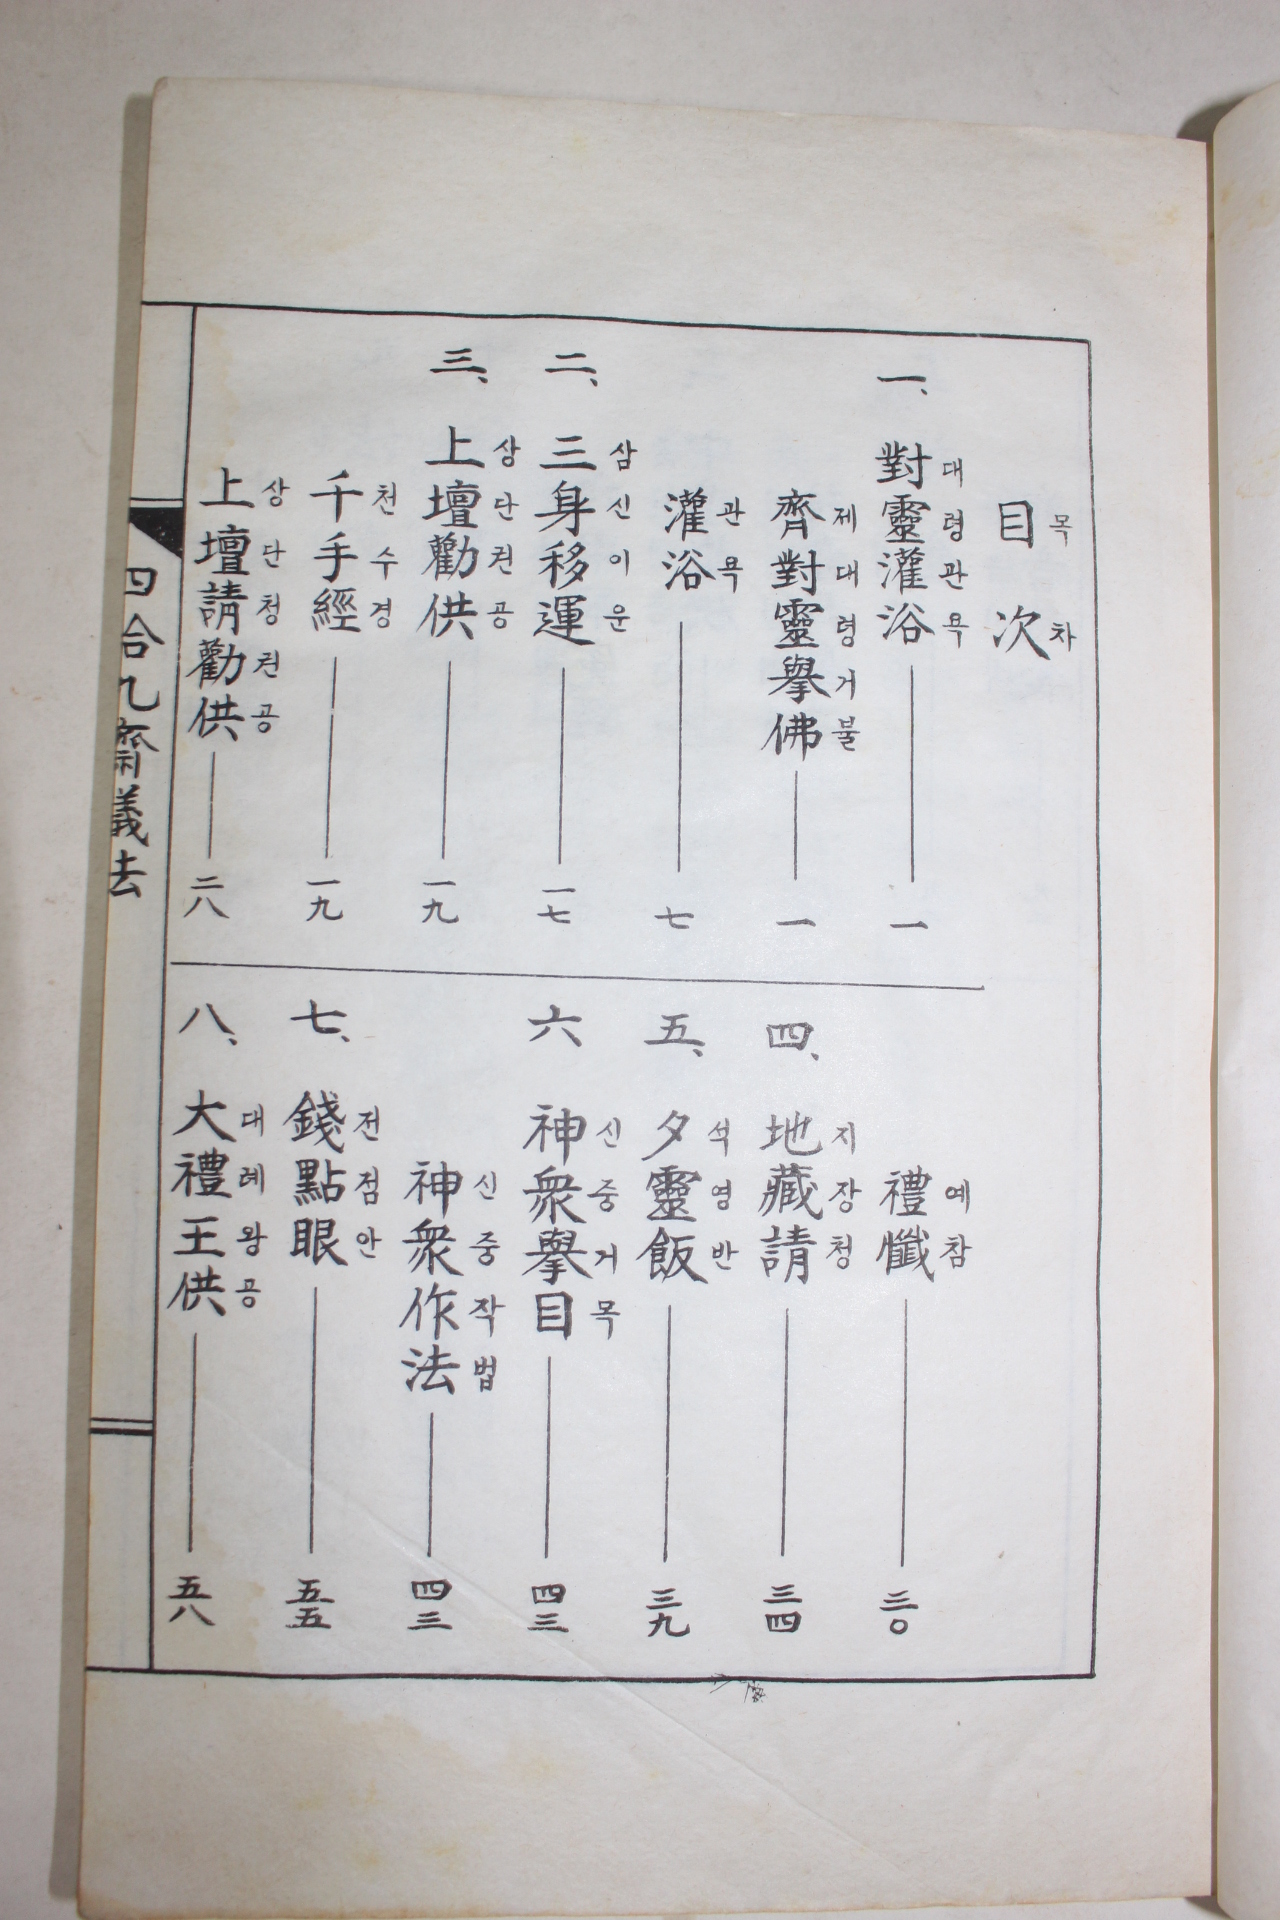 目次 목차
一、對靈灌浴 대령관욕 一
齊對靈擧佛 제대령거불 一
灌浴 관욕 七
二、三身移運 삼신이운 一七
三、上壇勸供 상단권공 一九
千手經 천수경 一九
上壇請勸供 상단청권공 二八
禮懺 예참 三〇
四、地藏請 지장청 三四
五、夕靈飯 석영반 三九
六 神衆擧目 신중거목 四三
神衆作法 신중작법 四三
七、錢點眼 전점안 五五
八、大禮王供 대례왕공 五八
四合九齋儀法